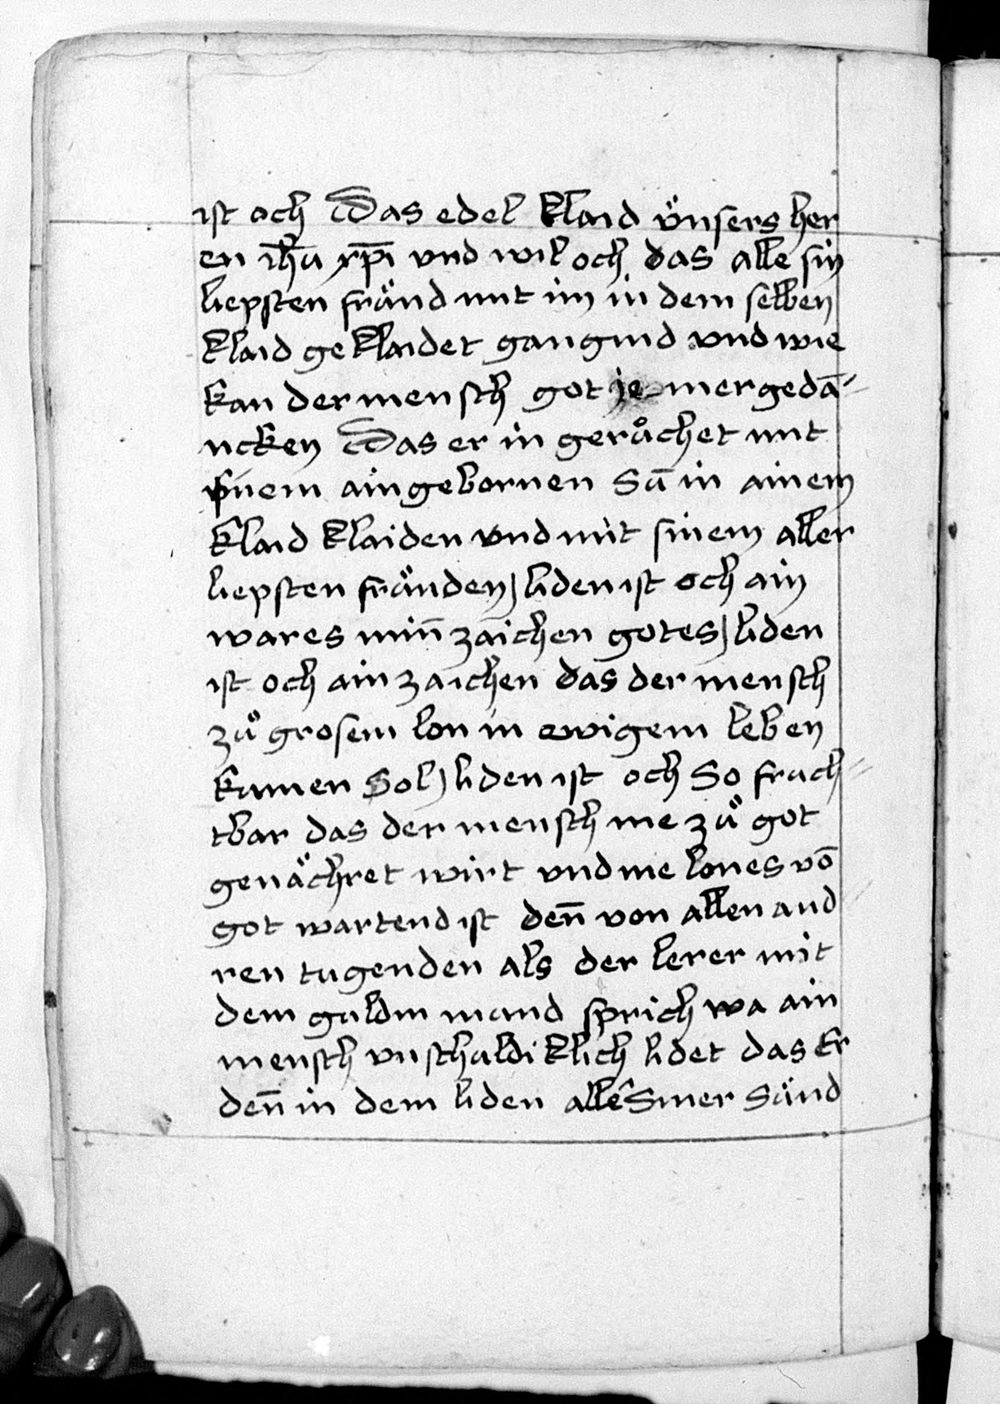 ist och Das edel klaid v̈nsers her
en ih̄u xp̄i vnd wil och das alle sin
liepsten fräẅnd mit im in dem selben
klaid geklaidet gangind vnd wie
kan der mensch got je mer gedā-
ncken Das er in gerůchet mit
sinem aingebornen Sū in ainem
klaid klaiden vnd mit sinem aller
liepsten fründen) liden ist och ain
wares min̄ zaichen gotes) liden
ist och ain zaichen das der mensch
zů grosem lon in ewigem leben
kumen Sol) liden ist och So fruch-
tbar das der mensch me zů got
genächret wirt vnd me lones vō
got wartend ist den̄ von allen and
ren tugenden als der lerer mit
dem guldin mund sprich wa ain
mensch vnschuldiklich lidet das Er
den̄ in dem liden alle Siner Sünd